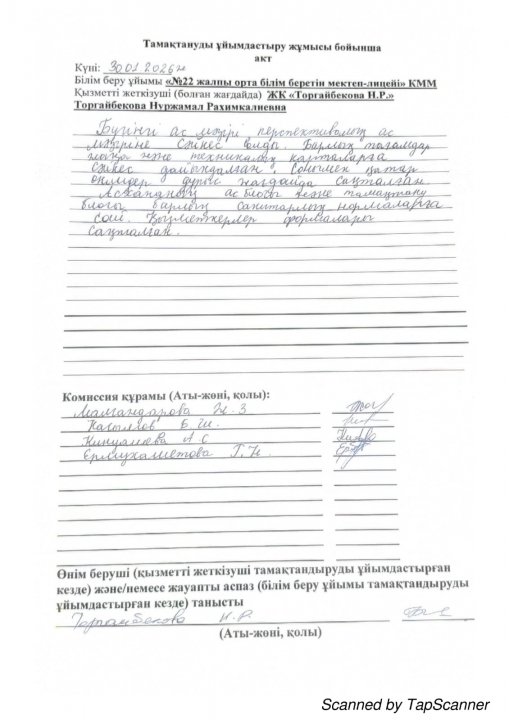 Тамақтануды ұйымдастыру жұмысы бойынша
акт
Күні: 30.01.2026ж
Білім беру ұйымы «№22 жалпы орта білім беретін мектеп-лицейі» КММ
Қызметті жеткізуші (болған жағдайда) ЖК «Торгайбекова Н.Р.»
Торгайбекова Нуржамал Рахимкалиевна
Бүгінгі ас мәзірі перспективалық ас
мәзіріне сәйкес болды. Барлық тағамдар
және техникалық карталарға
сәйкес дайындалған. Сонымен қатар
өнімдер дұрыс жағдайда сақталған
Асхананың ас блогы және тамақтану
блогы барлық санитарлық нормаларға
сай. Қызметкерлер формалары
сақталған.
Комиссия құрамы (Аты-жөні, қолы):
Ж. З
Б. Ш.
А С
Ермухаметова Г. К.
Өнім беруші (қызметті жеткізуші тамақтандыруды ұйымдастырған
кезде) және/немесе жауапты аспаз (білім беру ұйымы тамақтандыруды
ұйымдастырған кезде) танысты
Торгайбекова Н.Р.
(Аты-жөні, қолы)
Scanned by TapScanner